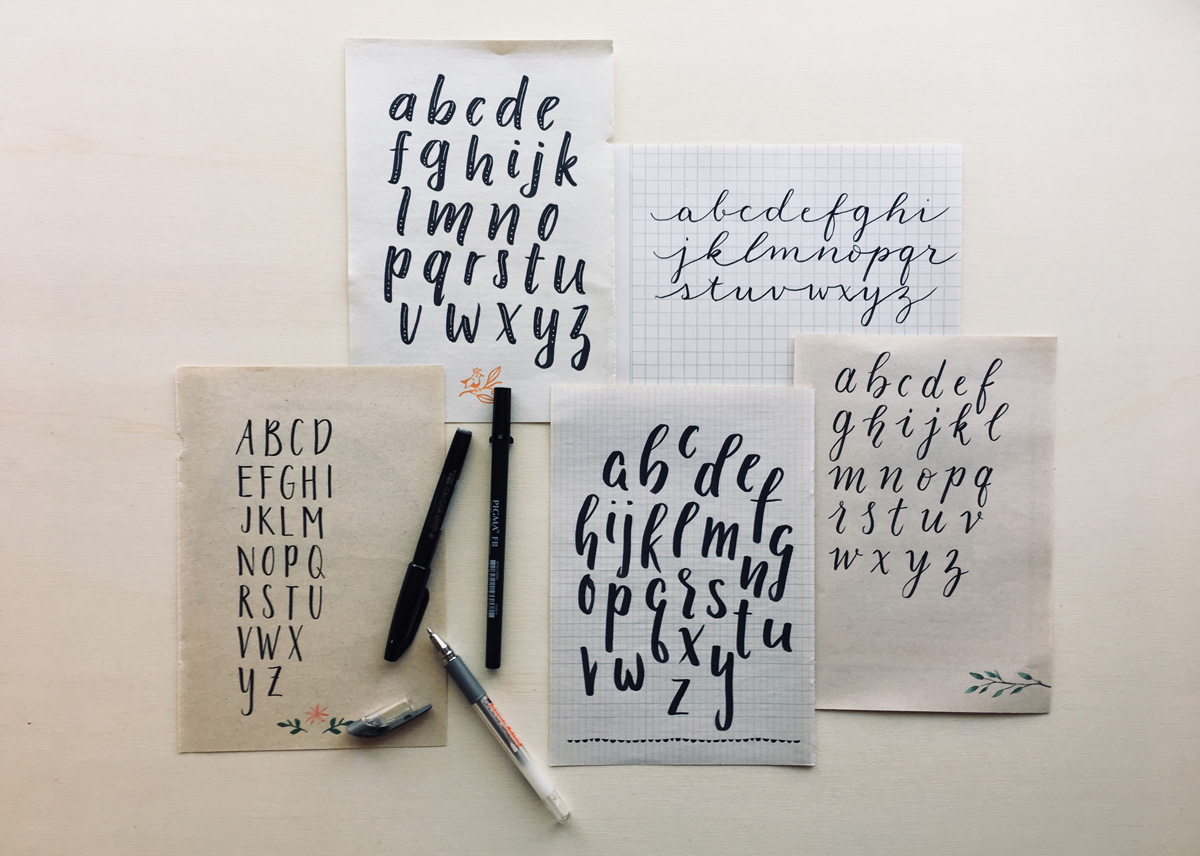 abcde
fghijk
lmno
pqrstu
vwxyz
abcdefghi
jklmnopqr
stuvwxyz
ABCD
EFGHI
JKLM
NOPQ
RSTU
VWX
YZ
PIGMA FB
abcdef
hijklmng
opqrstu
vwxy
z
abcdef
ghijkl
mnopq
rstuv
wxyz